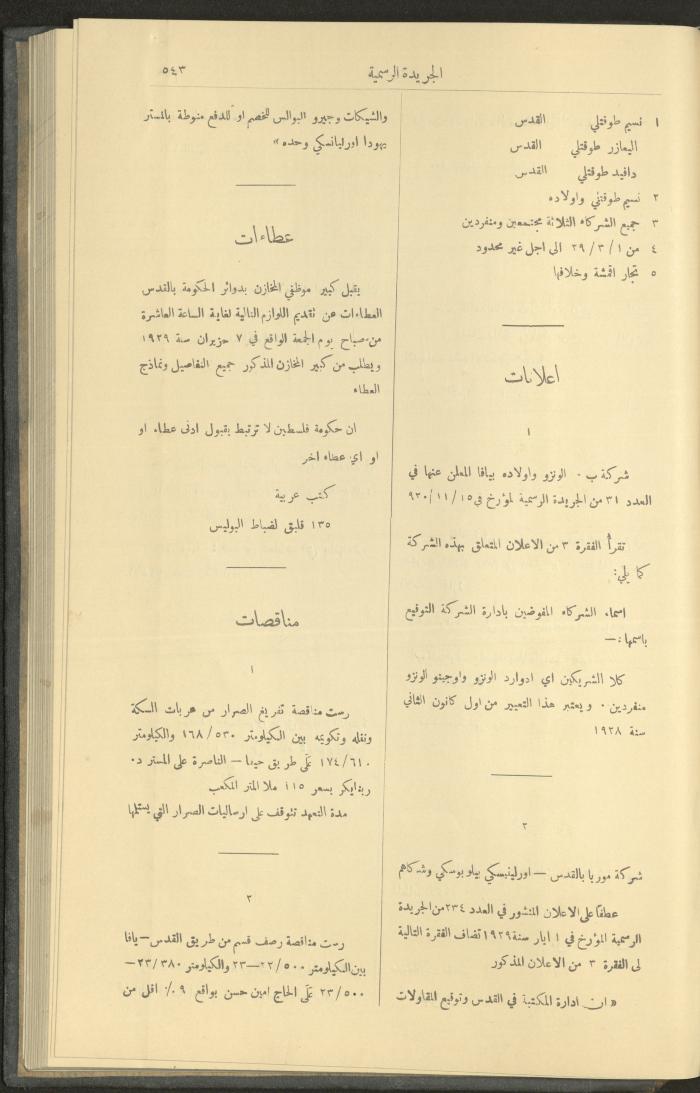 الجريدة الرسمية
٥٤٣
١ نسيم طوقتلي القدس
اليعازر طوقتلي القدس
دافيد طوقتلي القدس
٢ نسيم طوقتلي واولاده
٣ جميع الشركاء الثلاثة مجتمعين ومنفردين
٤ من ١ / ٣ / ٢٩ الى اجل غير محدود
٥ تجار اقمشة وخلافها
اعلانات
١
شركة ب . الونزو واولاده بيافا المعلن عنها في
العدد ٣١ من الجريدة الرسمية المؤرخ في ١٥ / ١١ / ٩٢٠
تقرأ الفقرة ٣ من الاعلان المتعلق بهذه الشركة
كما يلي:
اسماء الشركاء المفوضين بادارة الشركة التوقيع
باسمها :—
كلا الشريكين اي ادوارد الونزو واوجينو الونزو
منفردين . ويعتبر هذا التعيير من اول كانون الثاني
سنة ١٩٢٨
٢
شركة موريا بالقدس — اورلينسكي بيلوبوسكي وشركاهم
عطفا على الاعلان المنشور في العدد ٢٣٤ من الجريدة
الرسمية المؤرخ في ١ ايار سنة ١٩٢٩ تضاف الفقرة التالية
لى الفقرة ٣ من الاعلان المذكور
« ان ادارة المكتبة في القدس وتوقيع المقاولات
والشيكات وجيرو البوالس للخصم او للدفع منوطة بالمستر
يهودا اورليانسكي وحده »
عطاءات
يقبل كبير موظفي المخازن بدوائر الحكومة بالقدس
العطاءات عن تقديم اللوازم التالية لغاية الساعة العاشرة
من صباح يوم الجمعة الواقع في ٧ حزيران سنة ١٩٢٩
ويطلب من كبير المخازن المذكور جميع التفاصيل ونماذج
العطاء
ان حكومة فلسطين لا ترتبط بقبول ادنى عطاء او
او اي عطاء اخر
كتب عربية
١٣٥ قلبق لضباط البوليس
مناقصات
١
رست مناقصة تفريغ الصرار من عربات السكة
ونقله وتكويمه بين الكيلومتر ١٦٨/٥٣٠ والكيلومتر
١٧٤/٦١٠ على طريق حيفا — الناصرة على المستر د.
بسعر ١١٥ ملا المتر المكعب
مدة التعهد تتوقف على ارساليات الصرار التي يستلمها
٢
رست مناقصة رصف قسم من طريق القدس — يافا
بين الكيلومتر ٢٢/٥٠٠—٢٣ والكيلومتر ٢٣/٣٨٠ —
٢٣/٥٠٠ على الحاج امين حسن بواقع ٩ ٪ اقل من